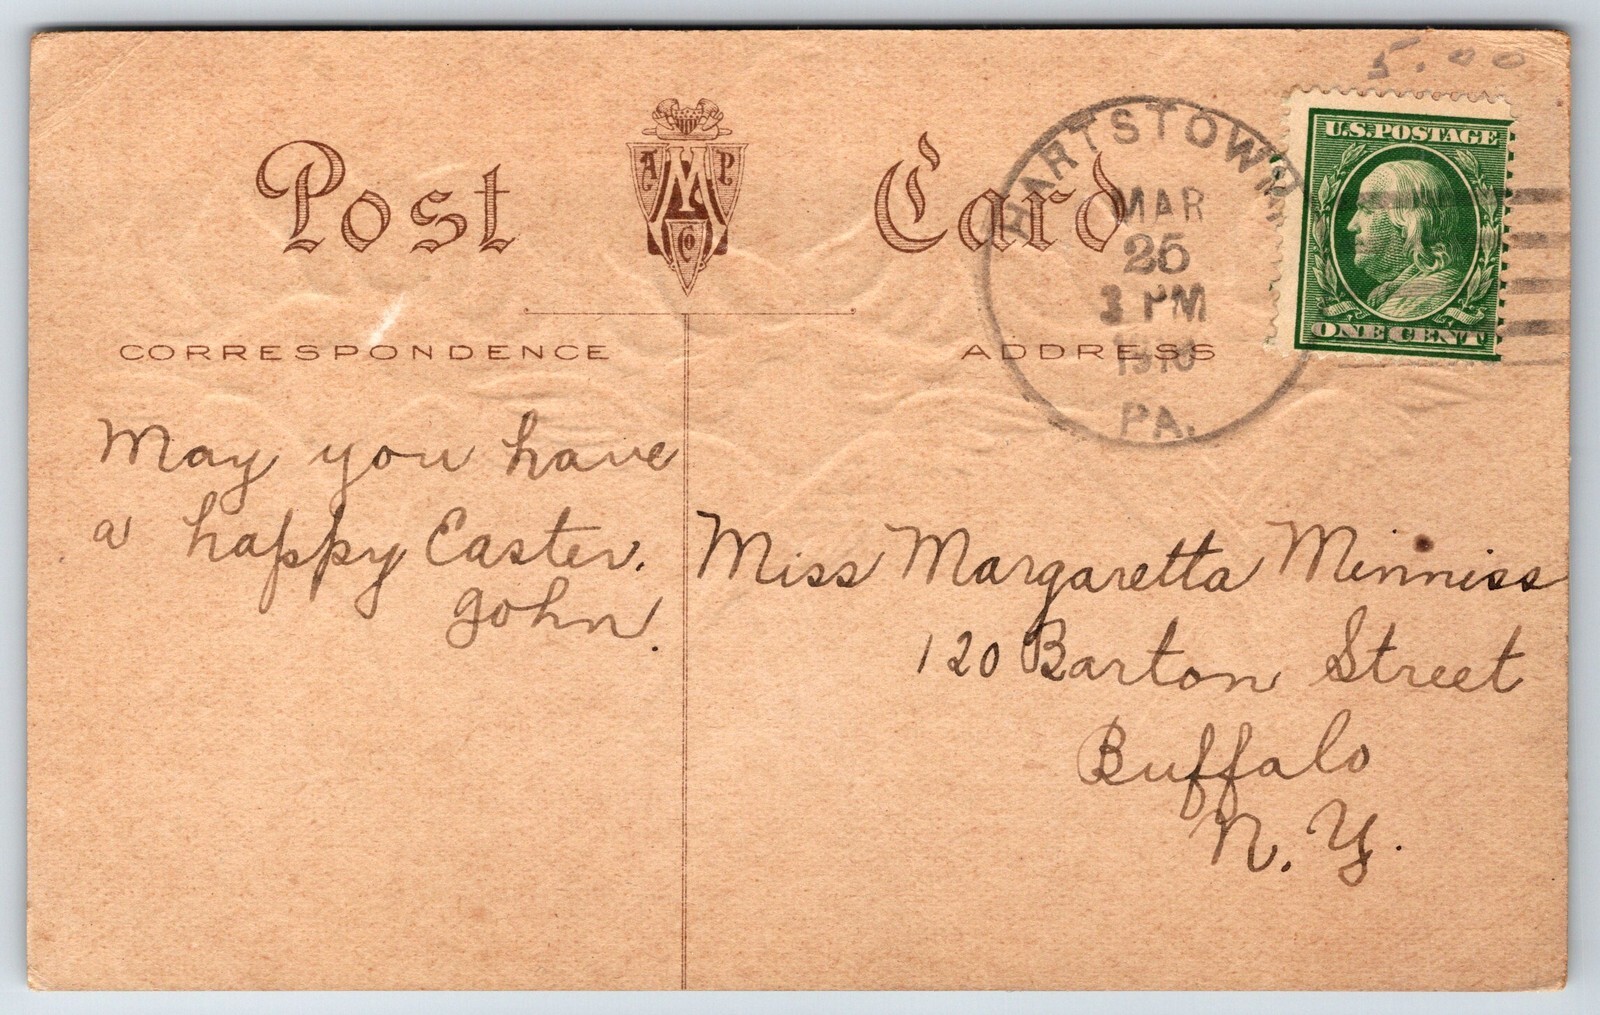 5.00
Post Card
A M P
Co
HARTSTOWN
MAR
25
3 PM
1910
PA.
U.S. POSTAGE
ONE CENT
CORRESPONDENCE
ADDRESS
May you have
a happy Easter.
John.
Miss Margaretta Minniss
120 Barton Street
Buffalo
N. Y.